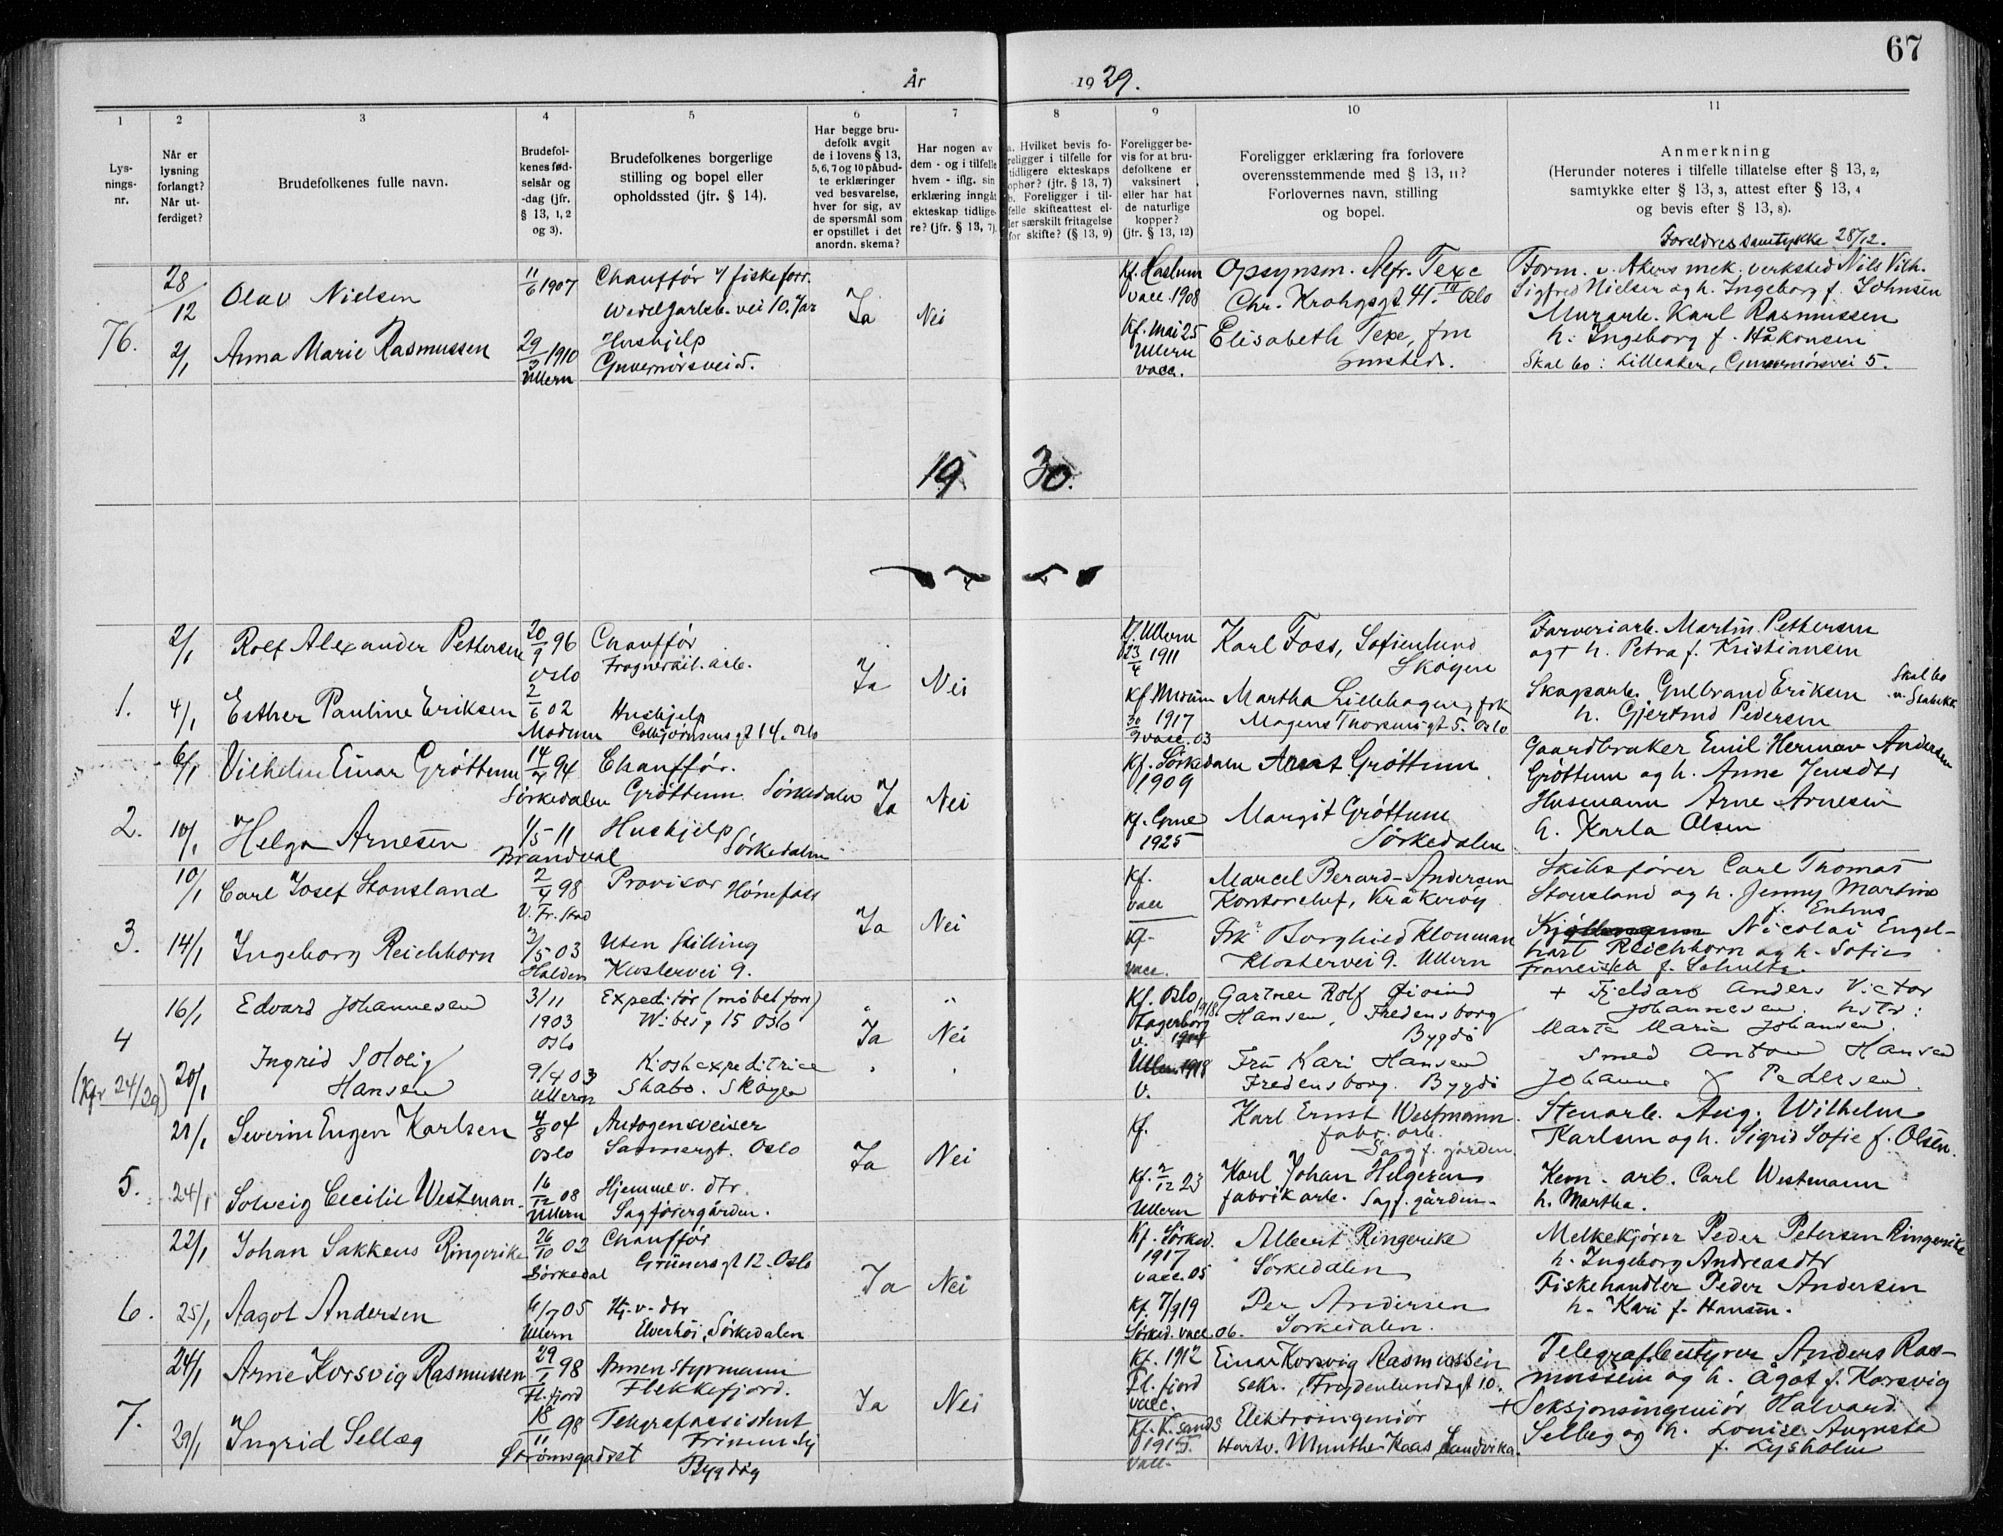 67
År
19 29.
1 2 3 4 5 6 7 8 9 10 11
Lys-
nings-
nr.
Når er
lysning
forlangt?
Når ut-
ferdiget?
Brudefolkenes fulle navn.
Brudefol-
kenes fød-
selsår og
-dag (jfr.
§ 13, 1, 2
og 3).
Brudefolkenes borgerlige
stilling og bopel eller
opholdssted (jfr. § 14).
Har begge bru-
defolk avgit
de i lovens § 13,
5, 6, 7 og 10 påbud-
te erklæringer
ved besvarelse,
hver for sig, av
de spørsmål som
er opstillet i det
anordn. skema?
Har nogen av
dem - og i tilfelle
hvem - iflg. sin
erklæring inngåt
ekteskap tidlige-
re? (jfr. § 13, 7).
a. Hvilket bevis fo-
religger i tilfelle for
tidligere ekteskaps
ophør? (jfr. § 13, 7)
b. Foreligger i til-
felle skifteattest el-
ler særskilt fritagelse
for skifte? (§ 13, 9)
Foreligger be-
vis for at bru-
defolkene er
vaksinert
eller har hat
de naturlige
kopper?
(jfr. § 13, 12)
Foreligger erklæring fra forlovere
overensstemmende med § 13, 11?
Forlovernes navn, stilling
og bopel.
Anmerkning
(Herunder noteres i tilfelle tillatelse efter § 13, 2,
samtykke efter § 13, 3, attest efter § 13, 4
og bevis efter § 13, 8).
Foreldres samtykke 28/12.
76.
28/12
Olav Nielsen
11/6 1907
Chauffør
Wedel Jarlsb. vei 10. Jar
Ja
Nei
Kf. Haslum
vacc. 1908
Opsynsm. Alfr. Texe
Chr. Krohgsgt 41. Oslo
Form. v. Akers mek. verksted Nils Vilh.
Sigfred Nielsen og h. Ingeborg f. Johnsen
2/1
Anna Marie Rasmussen
29/3 1910
Ullern
Hushjelp
Guvernørsvei 5.
Kf. Mai 25
Ullern
vacc.
Elisabeth Texe, fru
smsteds.
Murarb. Karl Rasmussen
h. Ingeborg f. Håkonsen
Skal bo: Lilleaker, Guvernørsvei 5.
19 30.
1.
2/1
Rolf Alexander Pettersen
20/9 96
Oslo
Chauffør
Ja
Nei
Ullern
23/4 1911
Karl Foss, Sofienlund
Skøyen
Farveriarb. Martin Pettersen
og h. Petra f. Kristiansen
4/1
Esther Pauline Eriksen
2/6 02
Modum
Hushjelp
Colbjørnsens gt 14. Oslo
Kf. Modum
30/9 1917
vacc. 03
Martha Lillehagen, frk
Mogens Thorsens gt 5. Oslo
Skogsarb. Gulbrand Eriksen
h. Gjertrud Pedersen
Skal bo
v. Stabekk
2.
6/1
Vilhelm Einar Grøttum
14/7 94
Sørkedalen
Chauffør.
Grøttum Sørkedalen
Ja
Nei
Kf. Sørkedalen
1909
Arnt Grøttum
Gaardbruker Emil Herman Andersen
Grøttum og h. Anne Jensdtr
10/1
Helga Arnesen
1/5 11
Brandval
Hushjelp
Sørkedalen
Kf. Grue
1925
Margit Grøttum
Sørkedalen
Husmann Arne Arnesen
h. Karla Olsen
3.
10/1
Carl Josef Stousland
2/4 98
V. Fr. stad
Provisor Hønefoss
Ja
Nei
Kf.
vacc
Marcel Berard-Andersen
Kontorchef, Kråkerøy
Skibsfører Carl Thomas
Stousland og h. Jenny Martine
14/1
Ingeborg Reichborn
3/5 03
Halden
Uten stilling
Klostervei 9.
Kf.
vacc.
Frk Borghild Klouman
Klostervei 9. Ullern
Nicolai Engel-
hart Reichborn og h. Sofie
f. Schultz.
4
(Kfr 24/29)
16/1
Edvard Johannesen
3/11
1903
Oslo
Expeditør (møbelforr)
Wibes g 15 Oslo
Ja
Nei
Kf. Oslo,
Fagerborg 1918.
v.
Gartner Rolf Øivind
Hansen, Fredensborg
Bygdø
+ Fjeldarb Anders Victor
Johannesen hstr:
Marte Marie Johansen.
20/1
Ingrid Solveig
Hansen
9/4 03
Ullern
Kioskexpeditrice
Skabo. Skøyen
Ullern 1918
v.
Fru Kari Hansen
Fredensborg. Bygdø
Smed Anton Hansen
Johanne f Pedersen.
5.
21/1
Severin Eugen Karlsen
4/8 04
Oslo
Autogensveiser
Sannergt. Oslo
Ja
Nei
Kf.
Karl Ernst Westmann.
fabr. arb.
Sagf. gården.
Stenarb. Aug. Wilhelm
Karlsen og h. Sigrid Sofie f. Olsen.
24/1
Solveig Cecilie Westman.
16/12 08
Ullern
Hjemmev. dtr.
Sagførergården.
Kf. 2/12 23
Ullern
Karl Johan Helgesen
fabrikarb. Sagf. gården.
Kem. arb. Carl Westmann
h. Martha.
6.
22/1
Johan Sakkeus Ringerike
26/10 02
Sørkedal
Chauffør
Grüners gt 12. Oslo
Ja
Nei
Kf. Sørked.
1917
vacc. 05
Albert Ringerike
Sørkedalen
Melkekjører Peder Petersen Ringerike
h. Ingeborg Andreasdtr
25/1
Aagot Andersen
6/7 05
Ullern
Hj. v. dtr
Elverhøi, Sørkedalen
Kf. 7/9 19
Sørked. vacc. 06.
Per Andersen
Sørkedalen.
Fiskehandler Peder Andersen
h. Kari f. Hansen.
7.
24/1
Arne Korsvig Rasmussen
29/1 98
Fl. fjord
Annenstyrmann
Flekkefjord.
Ja
Nei
Kf. 1912
Fl. fjord
vacc.
Einar Korsvig Rasmussen
sekr., Frydenlundsgt 10.
Telegrafbestyrer Anders Ras-
mussen og h. Ågot f. Korsvig
29/1
Ingrid Selleg
18/11 98
Strømsgodset
Telegrafassistent
Bygdøy
Kf. K. sand S
1913.
vacc.
Elektroingeniør
Hartv. Munthe-Kaas, Sandvika.
+ Seksjonsingeniør Halvard
Selleg og h. Louise Augusta
f. Lysholm